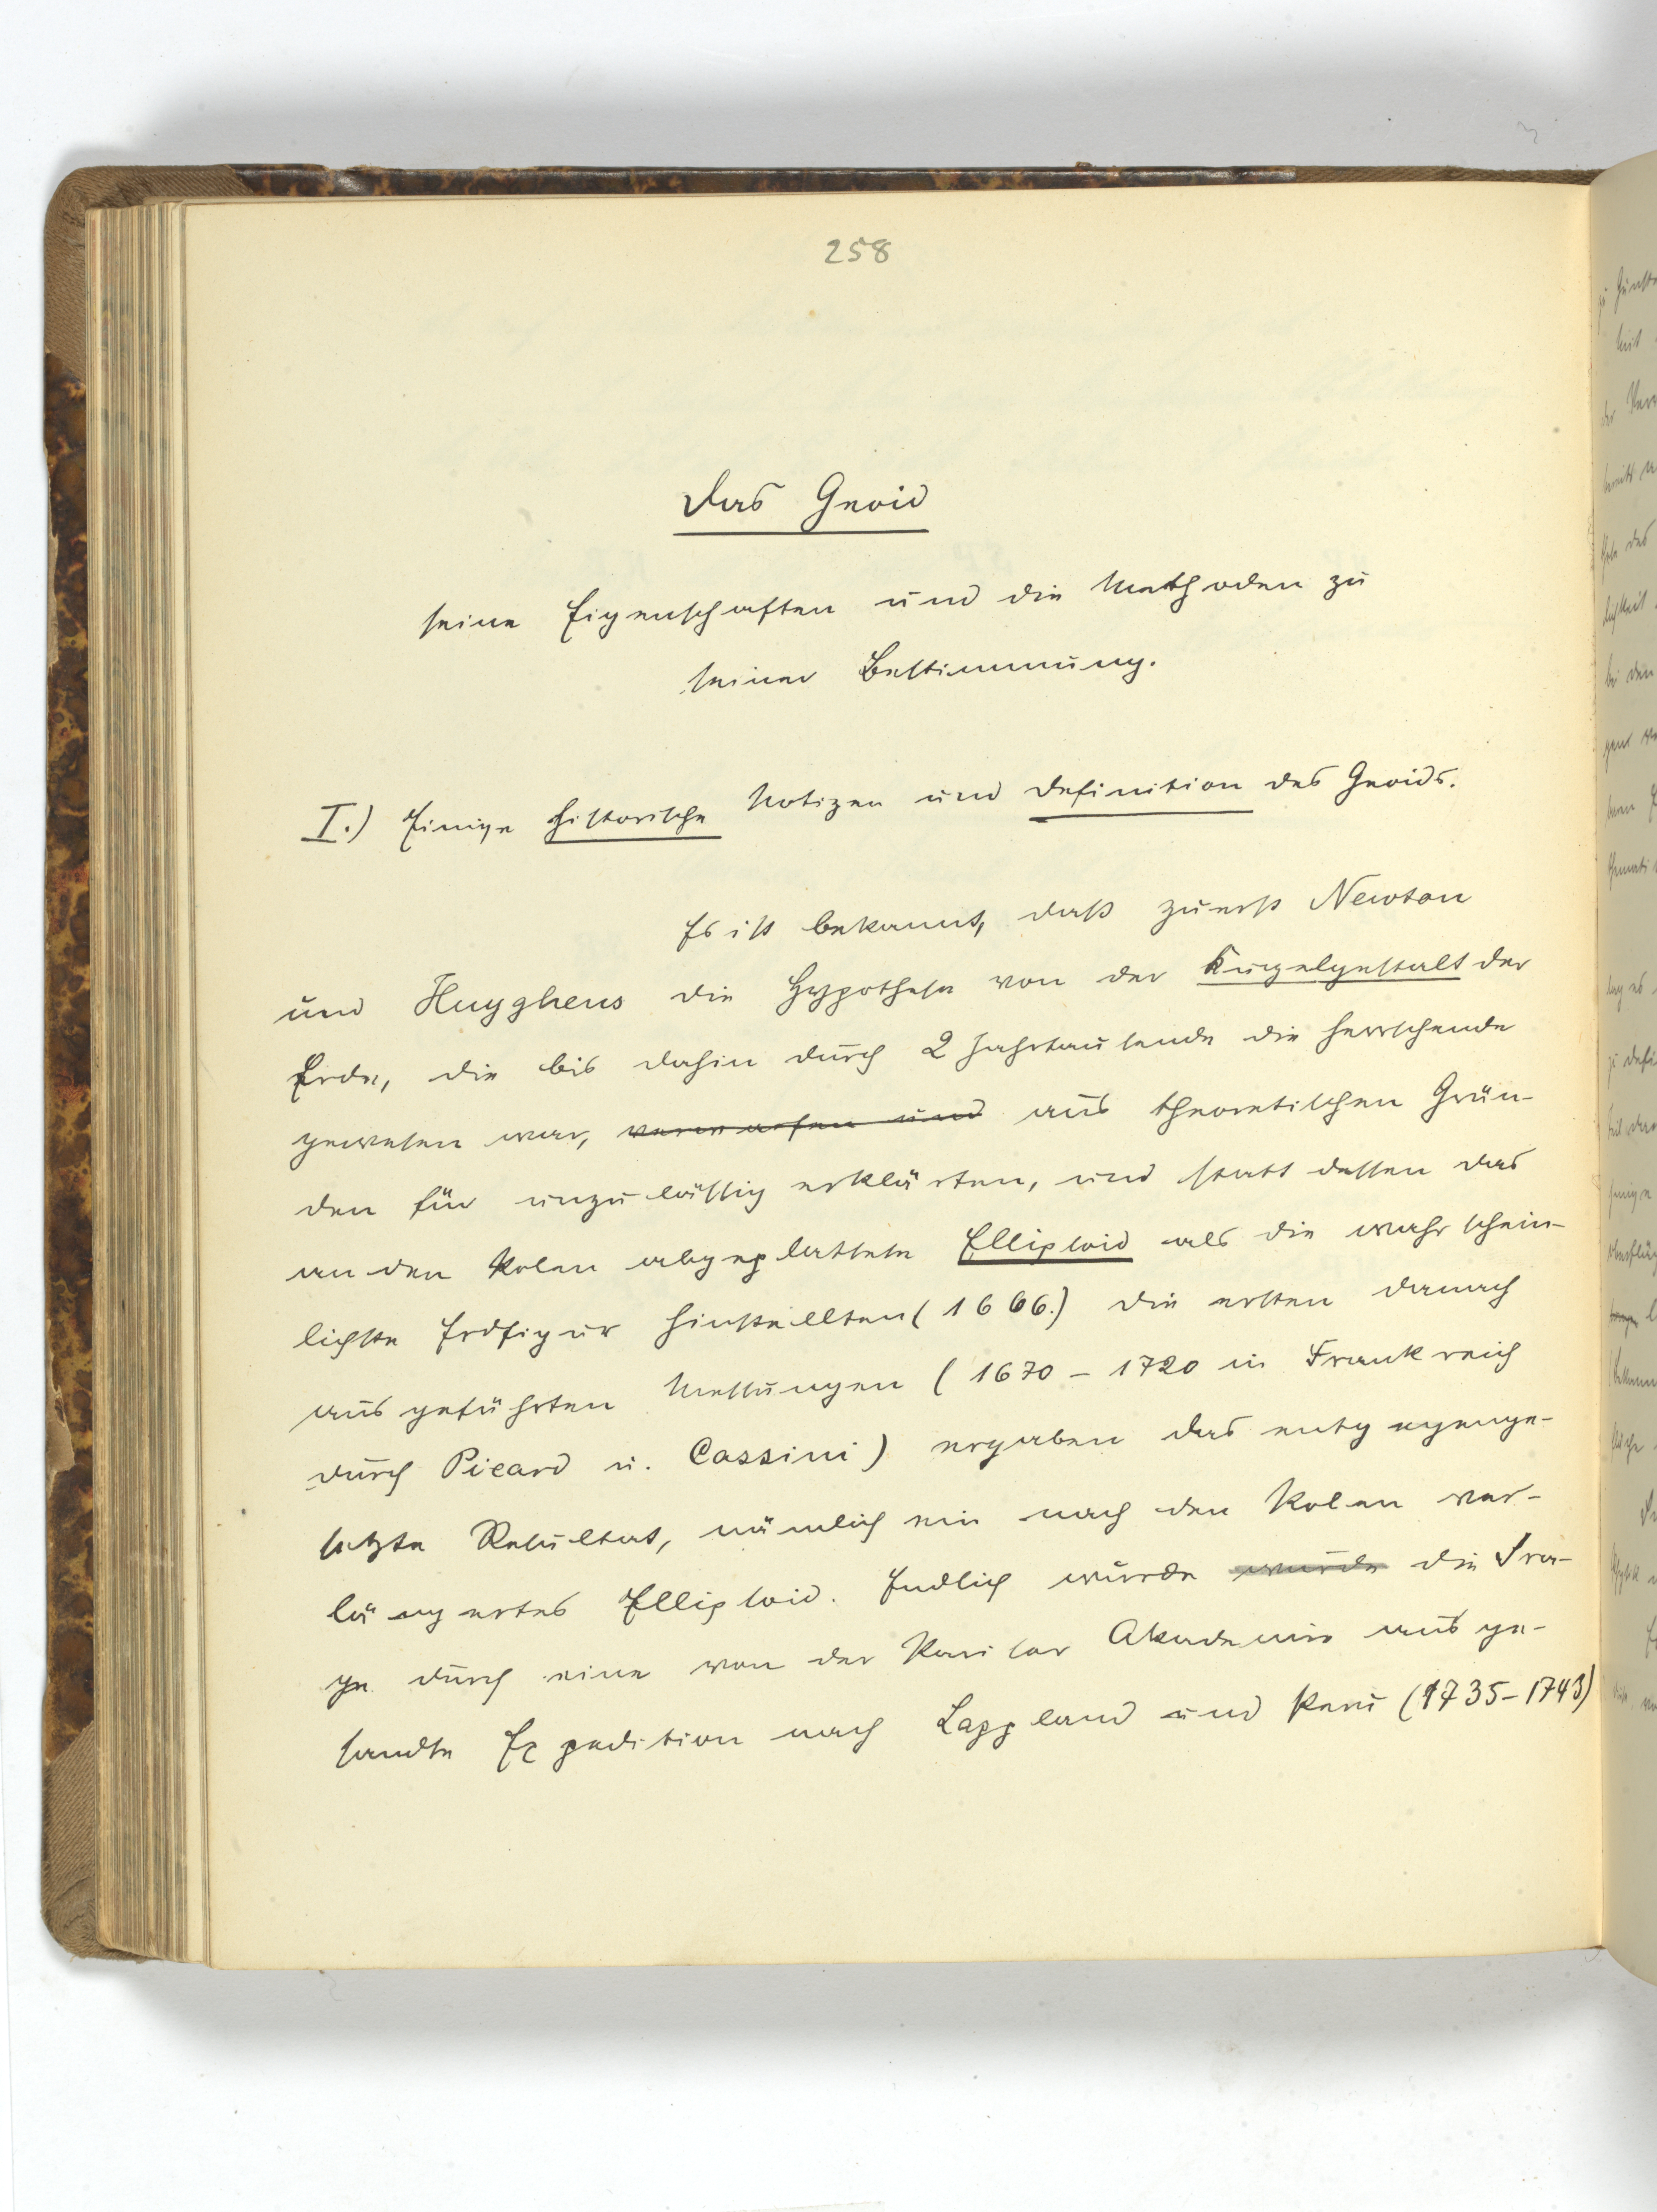 258
Das Geoid
seine Eigenschaften und die Methoden zu
seiner Bestimmung.
I.) Einige historische Notizen und Definition des Geoids.
Es ist bekannt, daß zuerst Newton
und Huyghens die Hypothese von der Kugelgestalt der
Erde, die bis dahin durch 2 Jahrtausende die herrschende
gewesen war, verworfen und aus theoretischen Grün-
den für unzulässig erklärten, und statt dessen das
an den Polen abgeplattete Ellipsoid als die wahrschein-
lichste Erdfigur hinstellten (1666.) Die ersten danach
ausgeführten Messungen (1670 – 1720 in Frankreich
durch Picard u. Cassini) ergaben das entgegenge-
setzte Resultat, nämlich ein nach den Polen ver-
längertes Ellipsoid. Endlich wurde wurde die Fra-
ge durch eine von der Pariser Akademie ausge-
sandte Expedition nach Lappland und Peru (1735–1743)